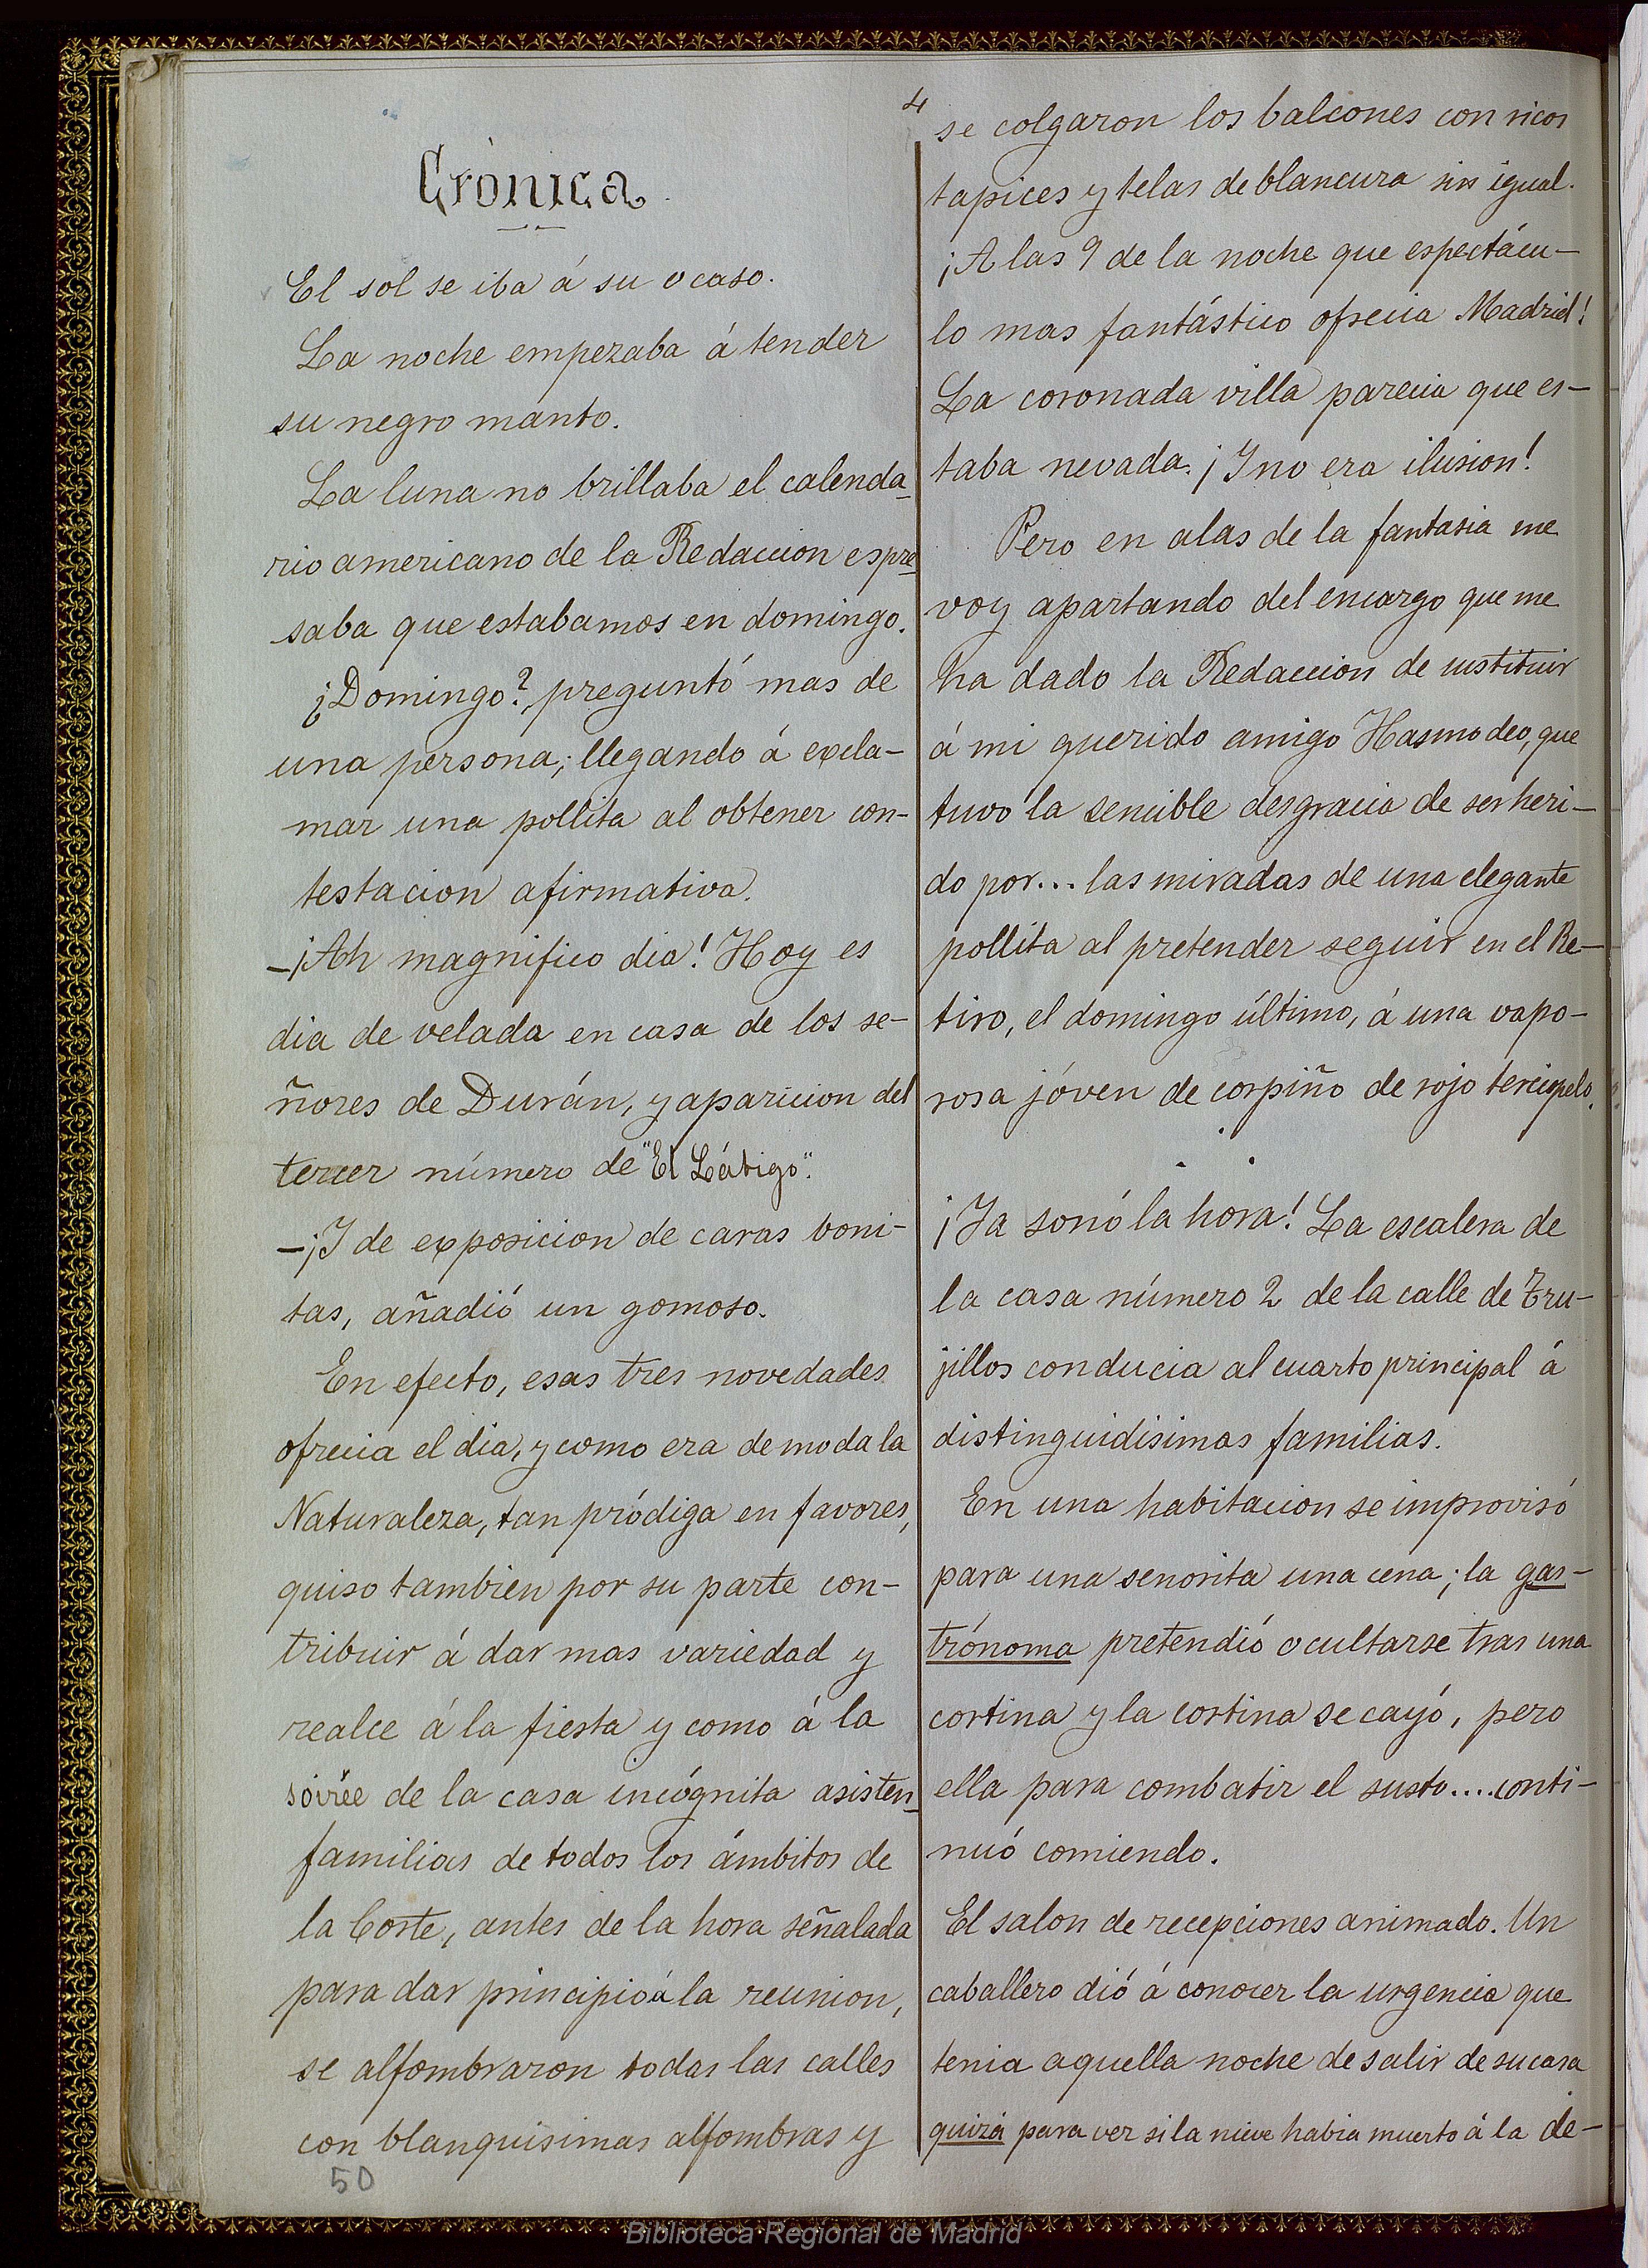 4
Crónica.
El sol se iba á su ocaso.
La noche empezaba á tender
su negro manto.
La luna no brillaba el calenda-
rio americano de la Redaccion espre-
saba que estabamos en domingo.
¿Domingo?, preguntó mas de
una persona; llegando á excla-
mar una pollita al obtener con-
testacion afirmativa.
-¡Ah magnifico dia! Hoy es
dia de velada en casa de los se-
ñores de Durán, y aparicion del
tercer número de "El Látigo".
-¡Y de exposicion de caras boni-
tas, añadió un gomoso.
En efecto, esas tres novedades
ofrecia el dia, y como era de moda la
Naturaleza, tan pródiga en favores,
quiso tambien por su parte con-
tribuir á dar mas variedad y
realce á la fiesta y como á la
soirée de la casa incógnita asisten
familias de todos los ámbitos de
la Corte, antes de la hora señalada
para dar principio á la reunion,
se alfombraron todas las calles
con blanquisimas alfombras y
50
se colgaron los balcones con ricos
tapices y telas de blancura sin igual.
¡A las 9 de la noche que espectácu-
lo mas fantástico ofrecia Madrid!
La coronada villa parecia que es-
taba nevada. ¡Y no era ilusion!
Pero en alas de la fantasia me
voy apartando del encargo que me
ha dado la Redaccion de sustituir
á mi querido amigo Hasmodeo, que
tuvo la sencible desgracia de ser heri-
do por... las miradas de una elegante
pollita al pretender seguir en el Re-
tiro, el domingo último, á una vapo-
rosa jóven de corpiño de rojo terciopelo.
¡Ya sonó la hora! La escalera de
la casa número 2 de la calle de Tru-
jillos conducia al cuarto principal á
distinguidisimas familias.
En una habitacion se improvisó
para una senorita una cena; la gas-
trónoma pretendió ocultarse tras una
cortina y la cortina se cayó, pero
ella para combatir el susto.... conti-
nuó comiendo.
El salon de recepciones animado. Un
caballero dió á conocer la urgencia que
tenia aquella noche de salir de su casa
quizá para ver si la nieve habia muerto á la de-
Biblioteca Regional de Madrid